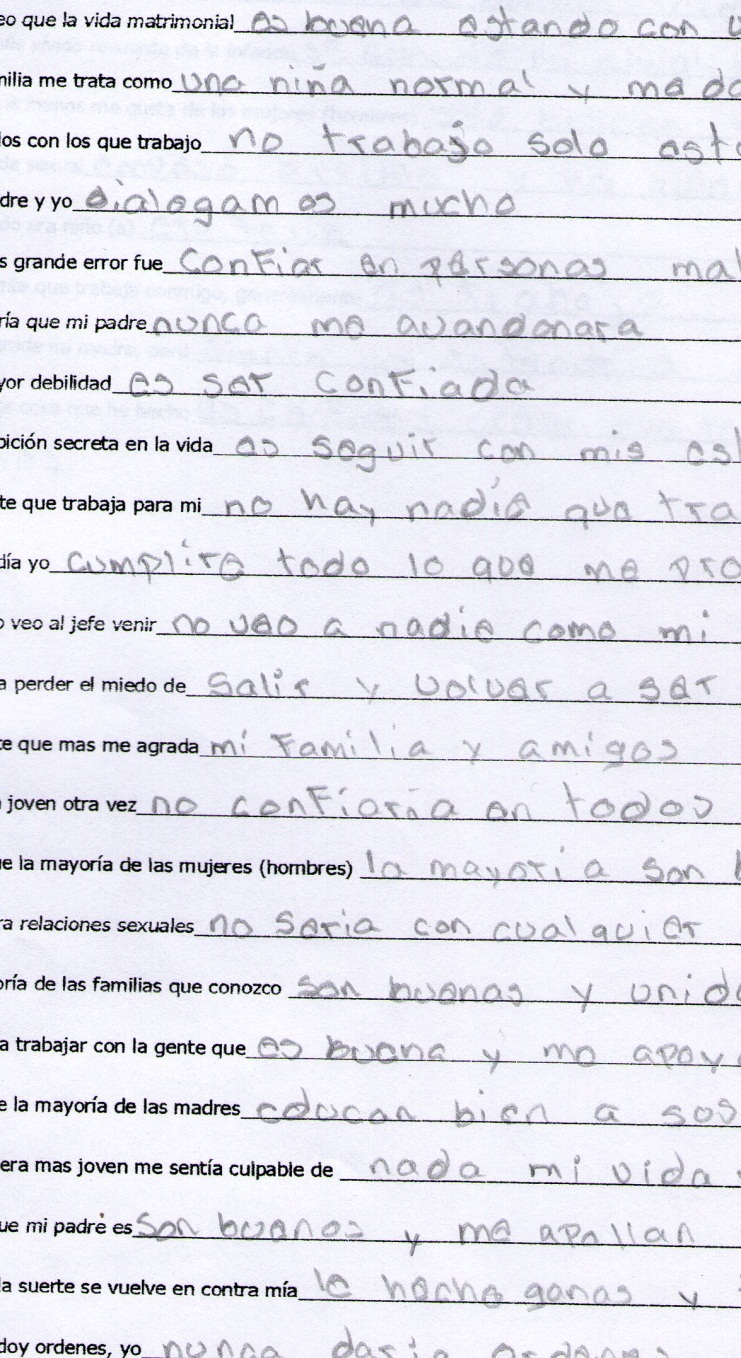 eo que la vida matrimonial es buena estando con u
milia me trata como una niña normal y me da
los con los que trabajo no trabajo solo est
dre y yo dialogam os mucho
s grande error fue confiar en personas mal
ría que mi padre nunca me avandonara
yor debilidad es ser confiada
bición secreta en la vida es seguir con mis es
te que trabaja para mi no hay nadie que tra
día yo cumplire todo lo que me pro
o veo al jefe venir no veo a nadie como mi
a perder el miedo de salir y volver a ser
te que mas me agrada mi familia y amigos
joven otra vez no confiaria en todos
ue la mayoría de las mujeres (hombres) la mayoria son
ra relaciones sexuales no seria con cualquier
oría de las familias que conozco son buenas y unid
a trabajar con la gente que es buena y me apoy
e la mayoría de las madres educan bien a sos
era mas joven me sentía culpable de nada mi vida
ue mi padre es son buenos y me apallan
la suerte se vuelve en contra mía le hecho ganas y
doy ordenes, yo nunca daria ordenes